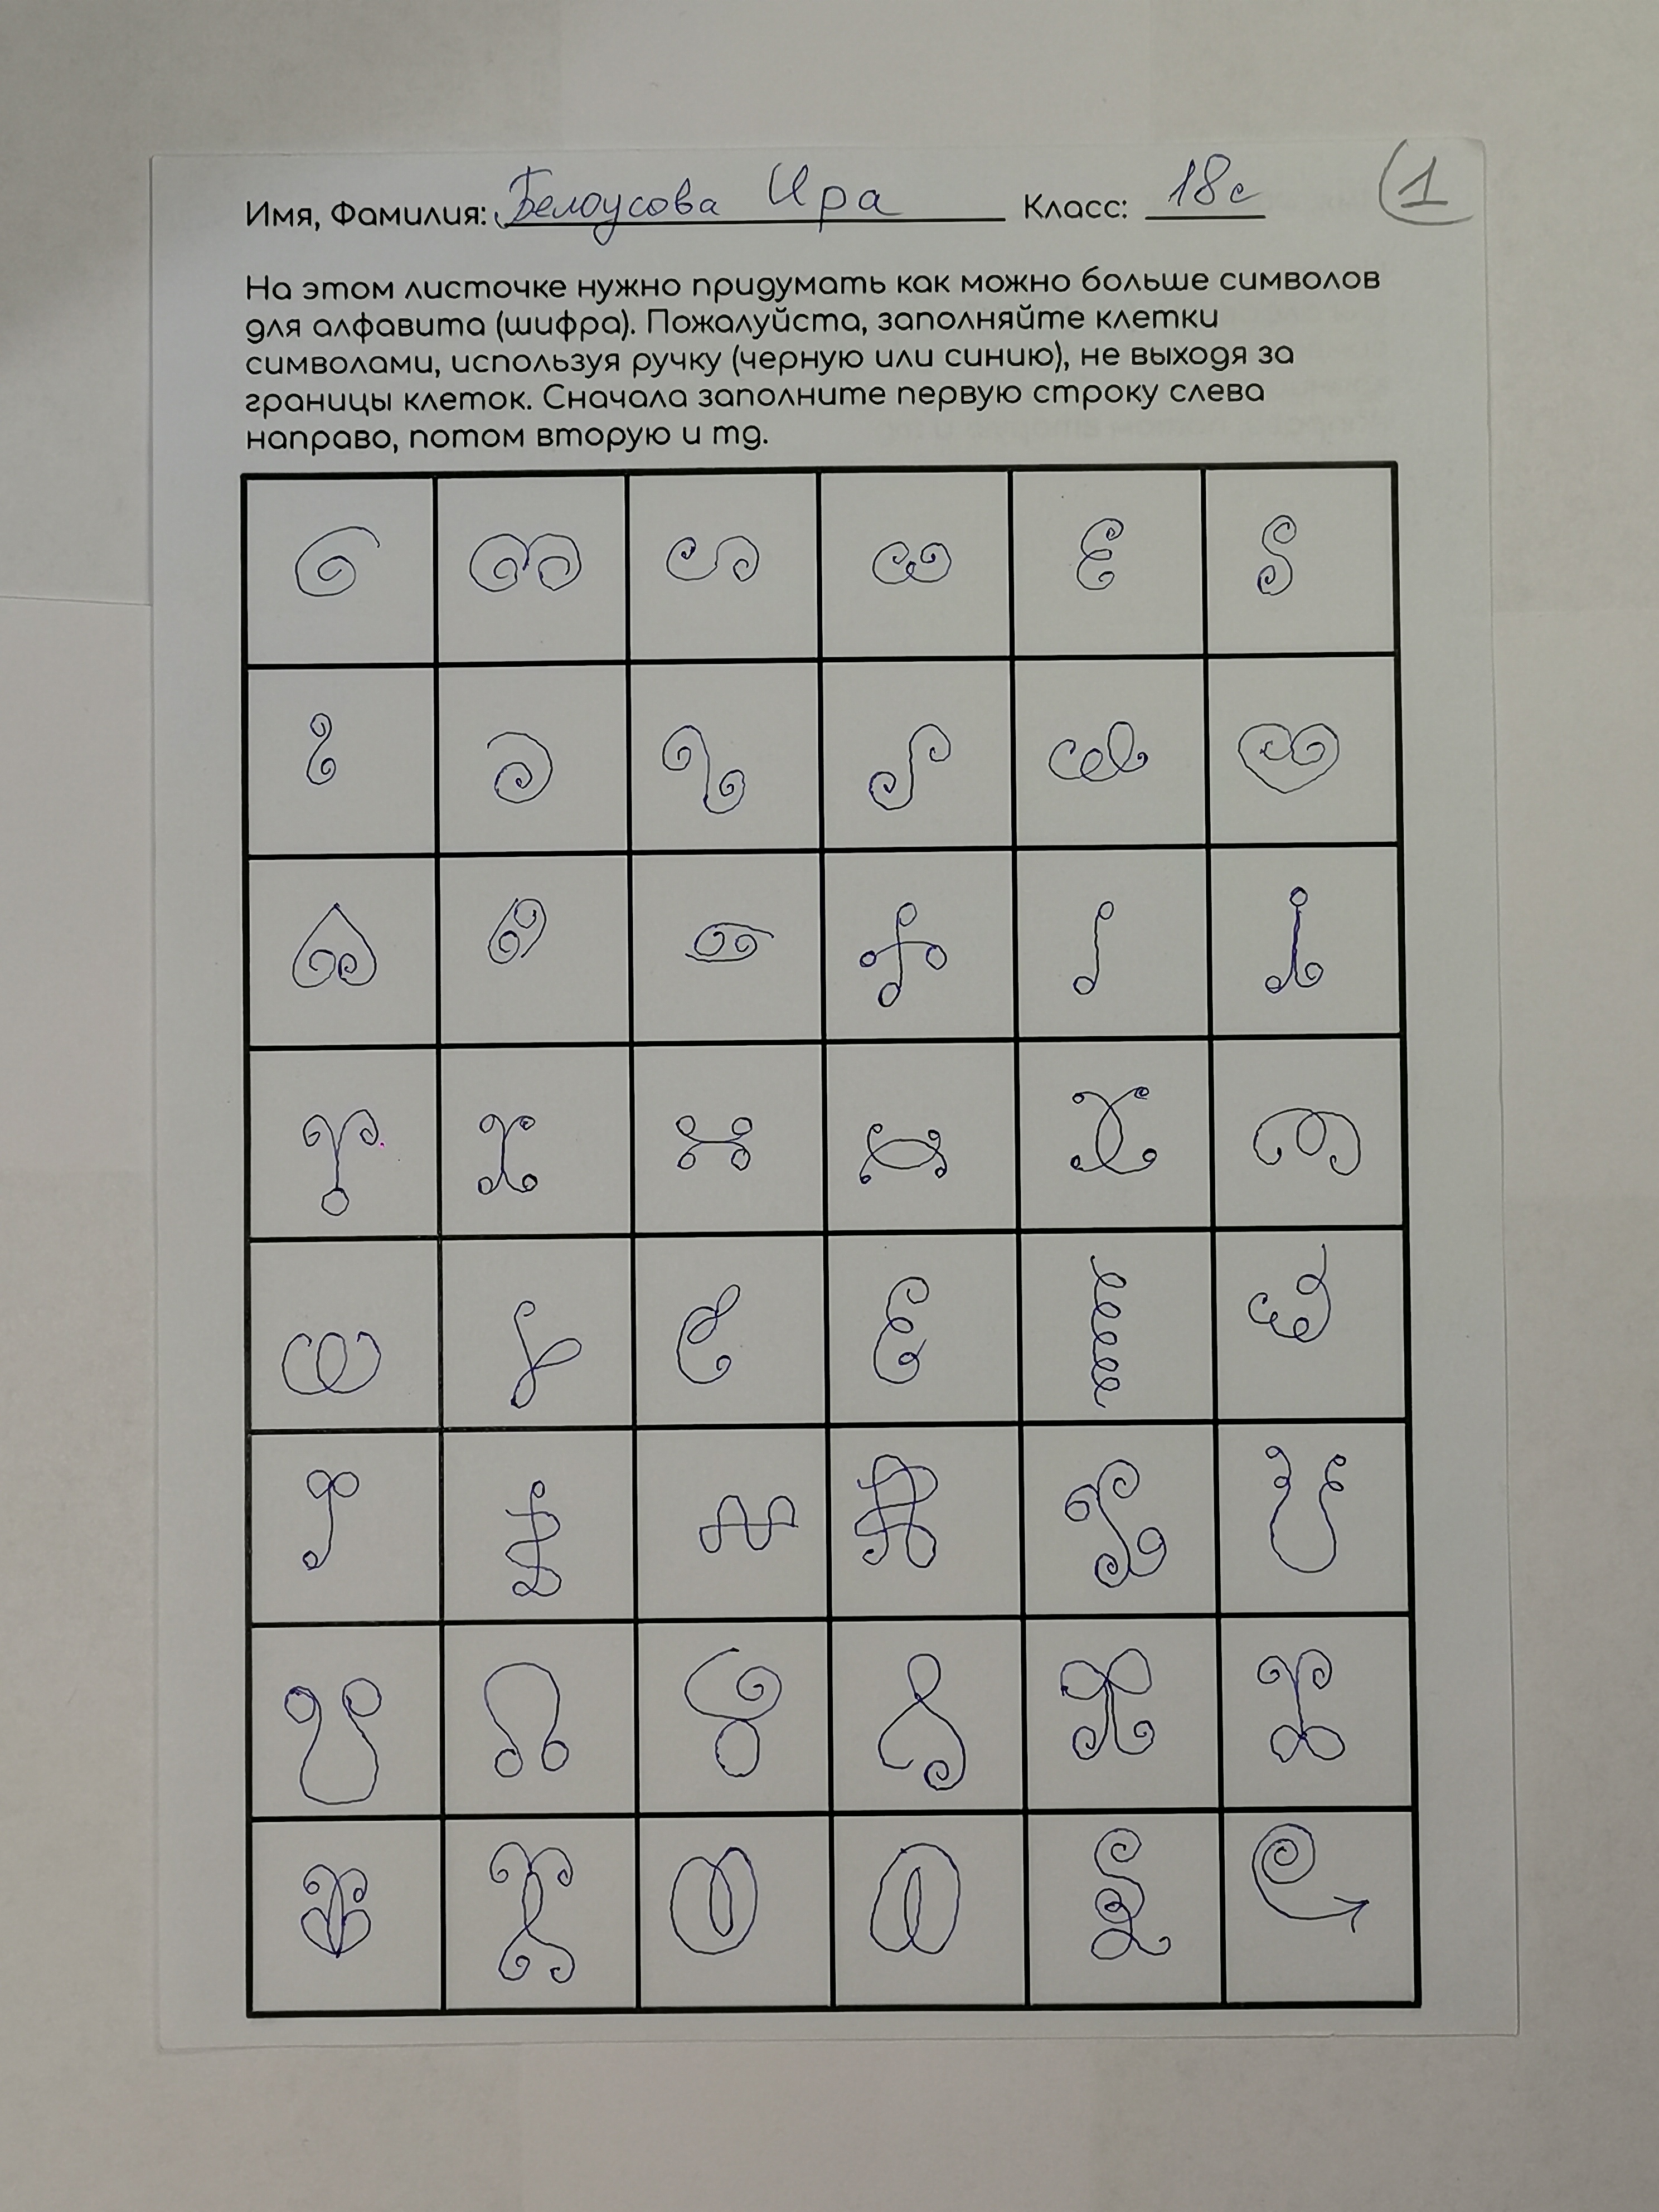 Имя, Фамилия: Белоусова Ира Класс: 18с 1
На этом листочке нужно придумать как можно больше символов
для алфавита (шифра). Пожалуйста, заполняйте клетки
символами, используя ручку (черную или синию), не выходя за
границы клеток. Сначала заполните первую строку слева
направо, потом вторую и тд.